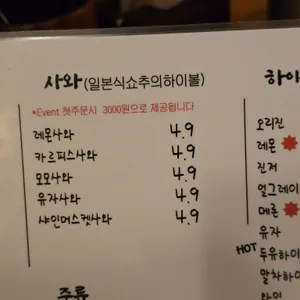 사와(일본식쇼추의하이볼)
*Event 첫주문시 3000원으로 제공됩니다
레몬사와 4.9
카르피스사와 4.9
모모사와 4.9
유자사와 4.9
샤인머스켓사와 4.9
주류
하이
오리진
레몬
진저
얼그레이
메론
유자
HOT 두유하이
말차하이